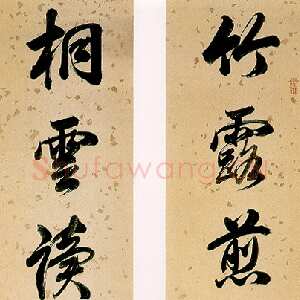 竹露煎
桐雲讀
Shufawang